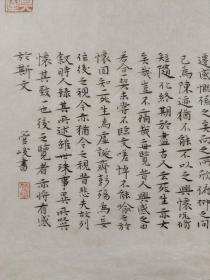 遷感慨係之矣向之所欣俛仰之間
已為陳迹猶不能不以之興懷況脩
短隨化終期於盡古人云死生亦大
矣豈不痛哉每覽昔人興感之由
若合一契未嘗不臨文嗟悼不能喻之於
懷固知一死生為虛誕齊彭殤為妄
作後之視今亦猶今之視昔悲夫故列
敘時人錄其所述雖世殊事異所以興
懷其致一也後之覽者亦將有感
於斯文
管峻書